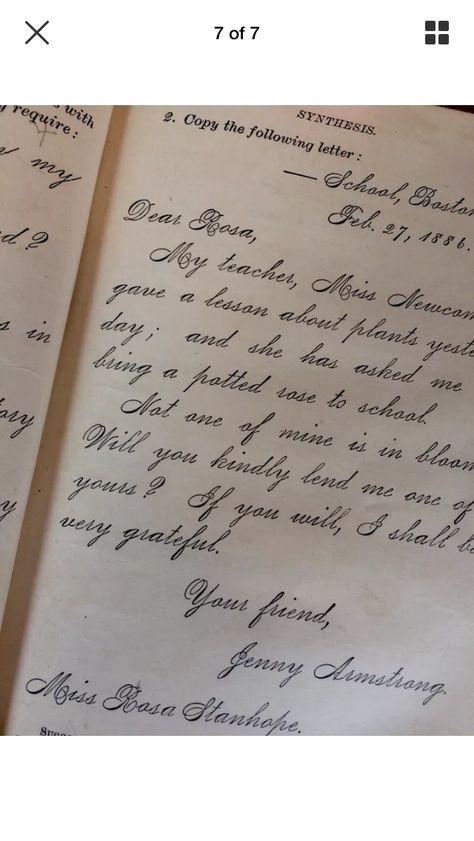 7 of 7
with
require:
my
d?
s in
ory
y
SYNTHESIS.
2. Copy the following letter:
— School, Boston
Feb. 27, 1886.
Dear Rosa,
My teacher, Miss Newcom
gave a lesson about plants yest
day; and she has asked me
bring a potted rose to school.
Not one of mine is in bloom
Will you kindly lend me one of
yours? If you will, I shall be
very grateful.
Your friend,
Jenny Armstrong.
Miss Rosa Stanhope.